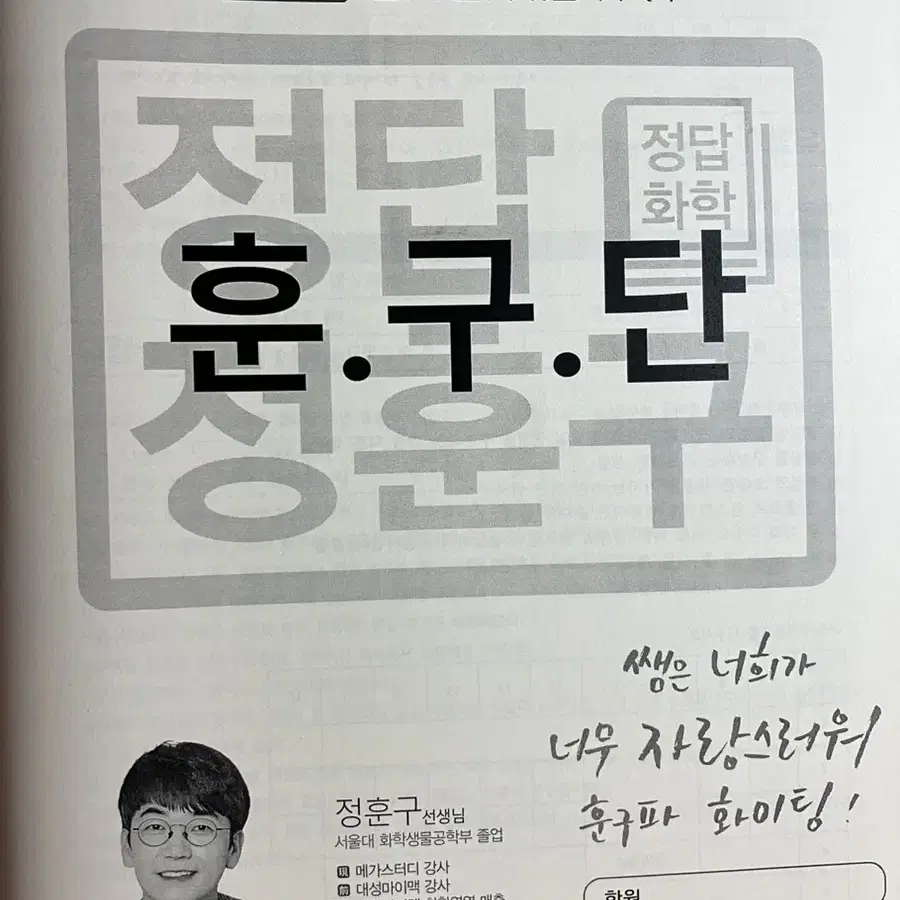 정답
정훈구
정답
화학
훈.구.단
쌤은 너희가
너무 자랑스러워
훈구파 화이팅!
정훈구선생님
서울대 화학생물공학부 졸업
現 메가스터디 강사
前 대성마이맥 강사
학원